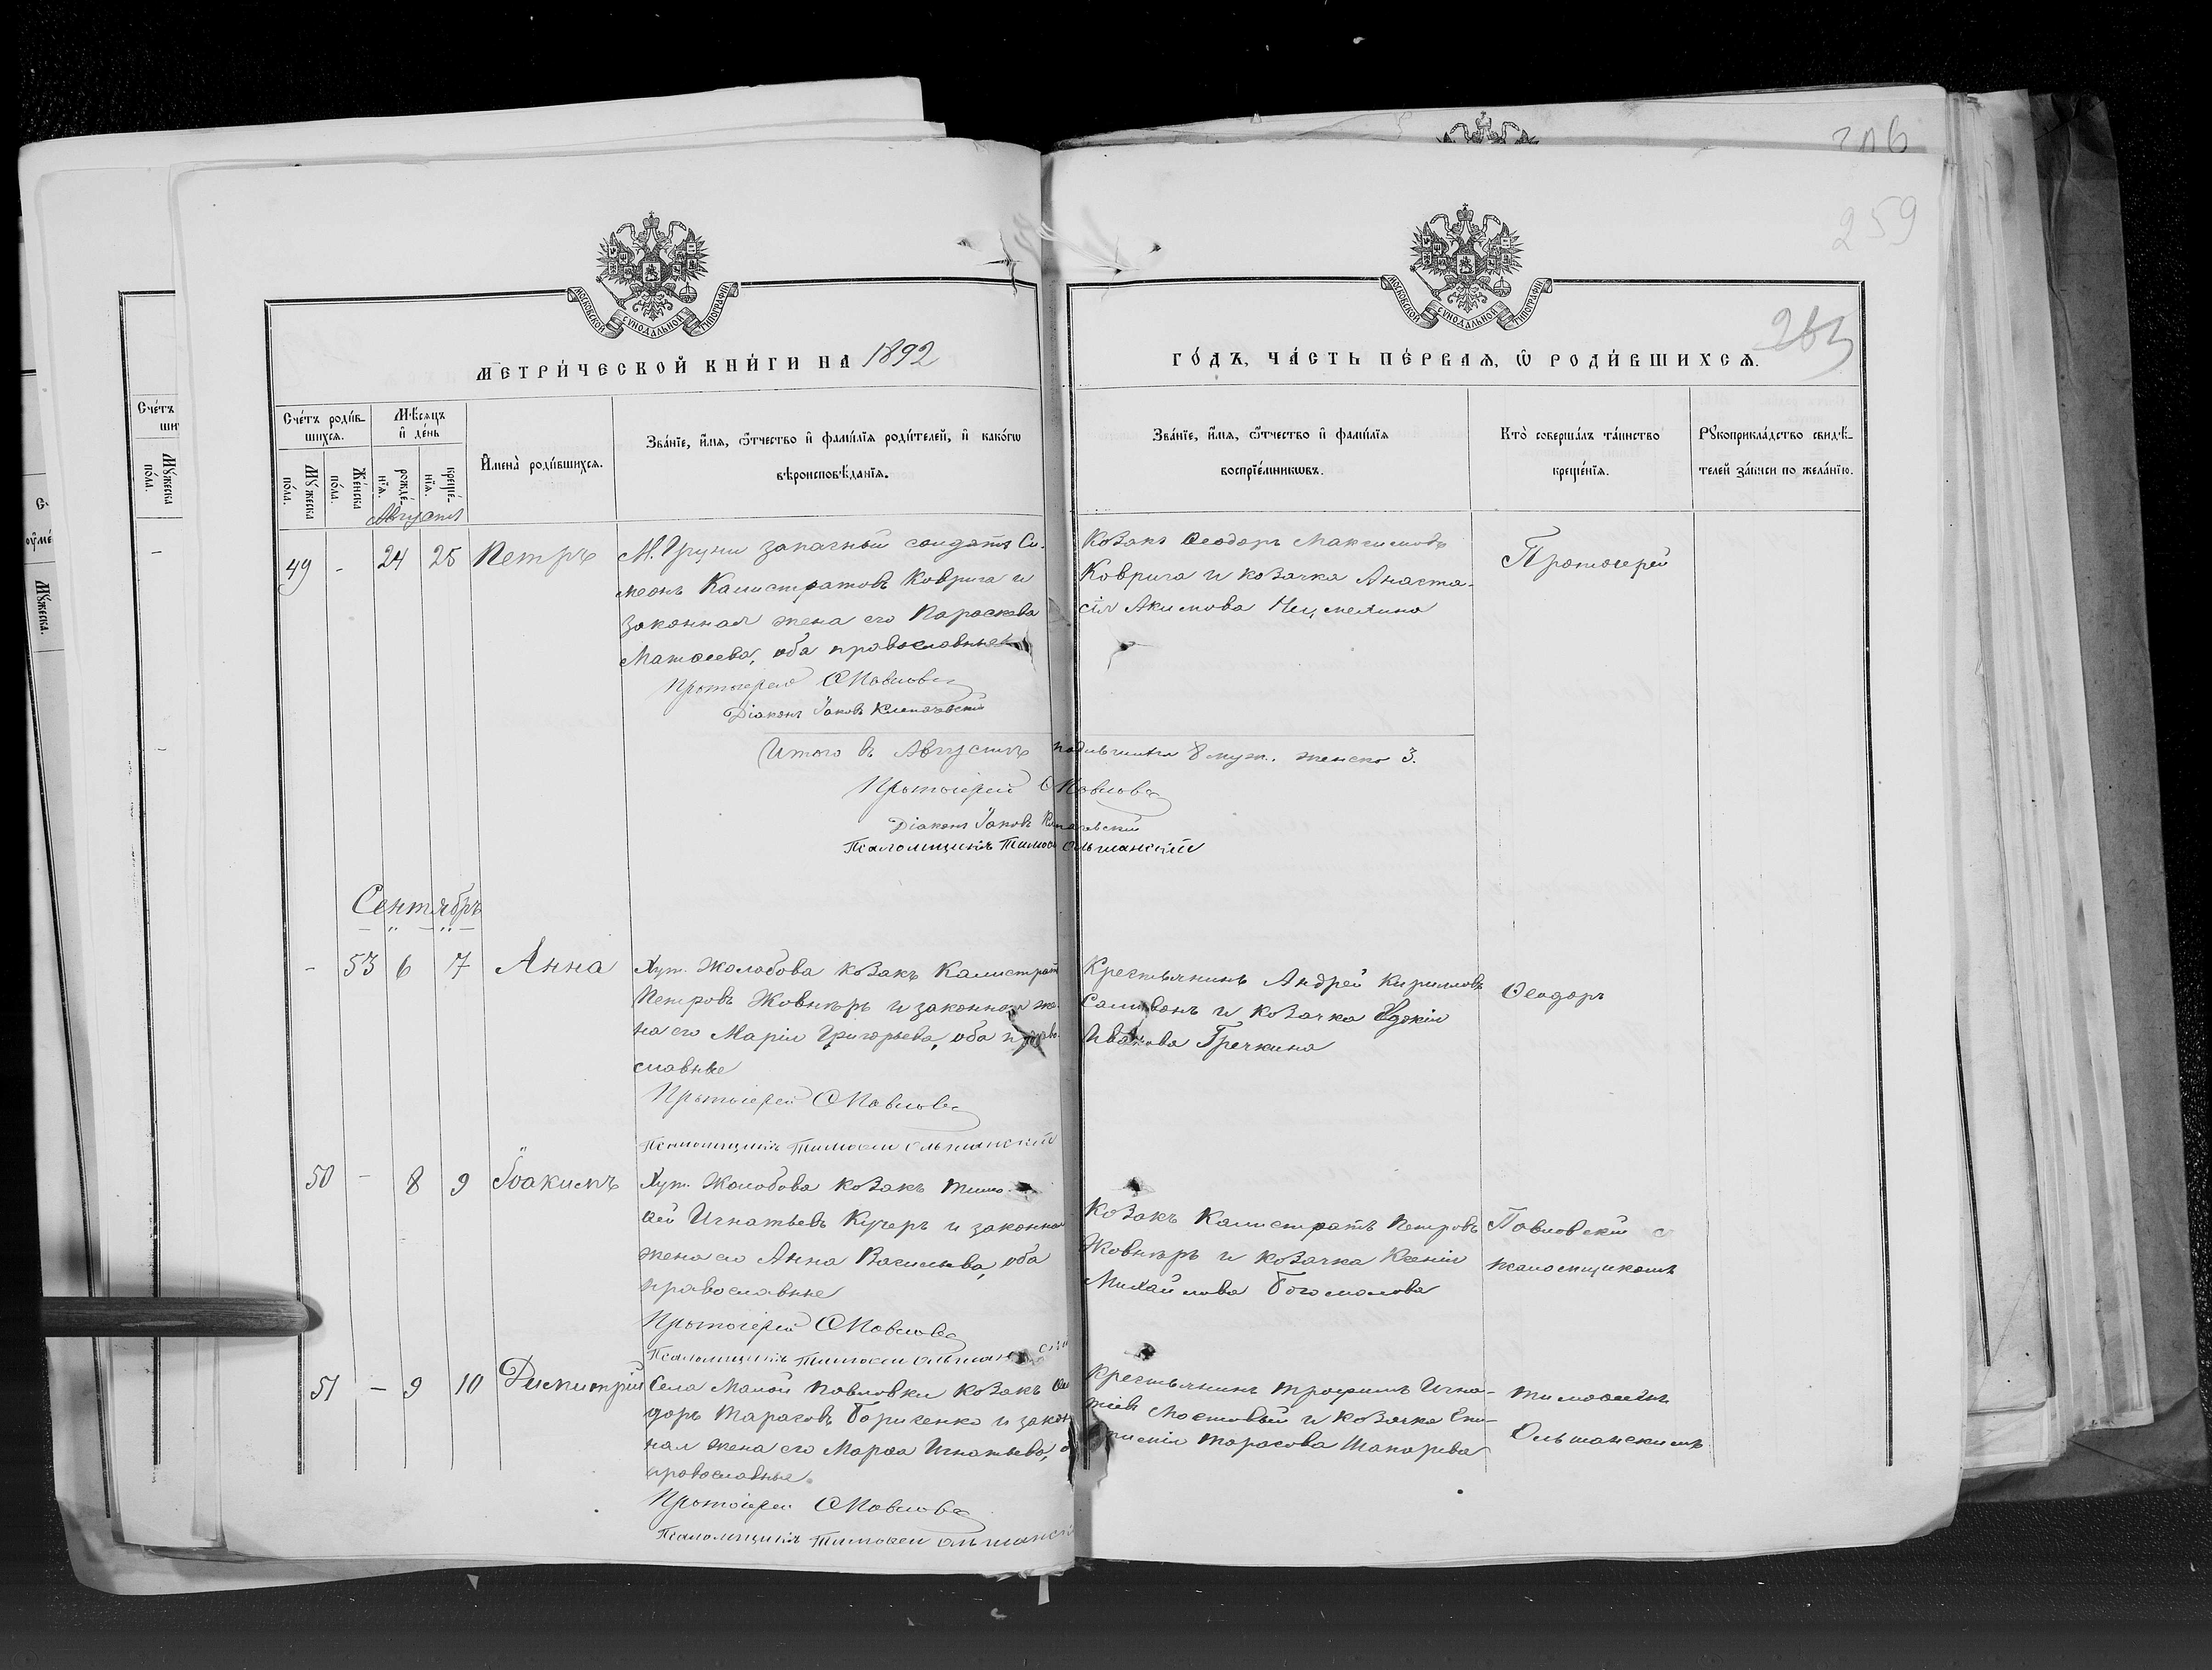 206
259
263
МОСКОВСКОЙ СѴНОДАЛЬНОЙ ТИПОГРАФІИ
МОСКОВСКОЙ СѴНОДАЛЬНОЙ ТИПОГРАФІИ
МЕТРИ́ЧЕСКОЙ КНИ́ГИ НА 1892
ГО́ДЪ, ЧА́СТЬ ПЕ́РВАЯ, Ѿ РОДИ́ВШИХСЯ.
Сче́тъ роди́вшихся.
Му́жеска по́ла.
Же́нска по́ла.
Мѣ́сяцъ и де́нь
рожде́нїя.
креще́нїя.
И҆мена̀ роди́вшихся.
Зва́нїе, и҆́мя, ѻ҆́тчество и҆ фами́лїя роди́телей, и҆ како́гѡ
вѣроисповѣ́данїя.
Зва́нїе, и҆́мя, ѻ҆́тчество и҆ фами́лїя
воспрїе́мникѡвъ.
Кто̀ соверша́лъ та́инство
креще́нїя.
Рꙋкоприкла́дство свидѣ́-
телей за́писи по жела́нїю.
Августъ
49 - 24 25 Петръ
М. Груни запасный солдатъ Си-
меонъ Калистратовъ Коврига и
законная жена его Параскева
Матѳеева, оба православные
Протоіерей
Діаконъ Іаковъ
Козакъ Ѳеодоръ Максимовъ
Коврига и козачка Анаста-
сія Акимова
Протоіерей
Итого въ Августѣ родившихся 8 муж. женска 3.
Протоіерей
Діаконъ Іаковъ
Псаломщикъ Тимоѳей Ольшанскій
Сентябрь
- 53 6 7 Анна
Хут. Жолобова козакъ Калистратъ
Петровъ Жовнѣръ и законная же-
на его Марія Григорьева, оба право-
славные
Протоіерей
Псаломщикъ Тимоѳей Ольшанскій
Крестьянинъ Андрей Кирилловъ
Саливонъ и козачка Евдокія
Иванова Гречкина
Ѳеодоръ
50 - 8 9 Іоакимъ
Хут. Жолобова козакъ Тимо-
ѳей Игнатьевъ Кучеръ и законная
жена его Анна Васильева, оба
православные
Протоіерей
Псаломщикъ Тимоѳей Ольшанскій
Козакъ Калистратъ Петровъ
Жовнѣръ и козачка Ксенія
Михайлова Богомолова
Павловскій с
псаломщикомъ
51 - 9 10 Димитрій
Села Малой Павловки козакъ Ѳео
доръ Тарасовъ Борисенко и закон
ная жена его Марѳа Игнатьева, о
православные.
Протоіерей
Псаломщикъ Тимоѳей Ольшанскі
Крестьянинъ Трофимъ Игна-
тіевъ Мостовый и козачка
Тарасова
Тимоѳеемъ
Ольшанскимъ